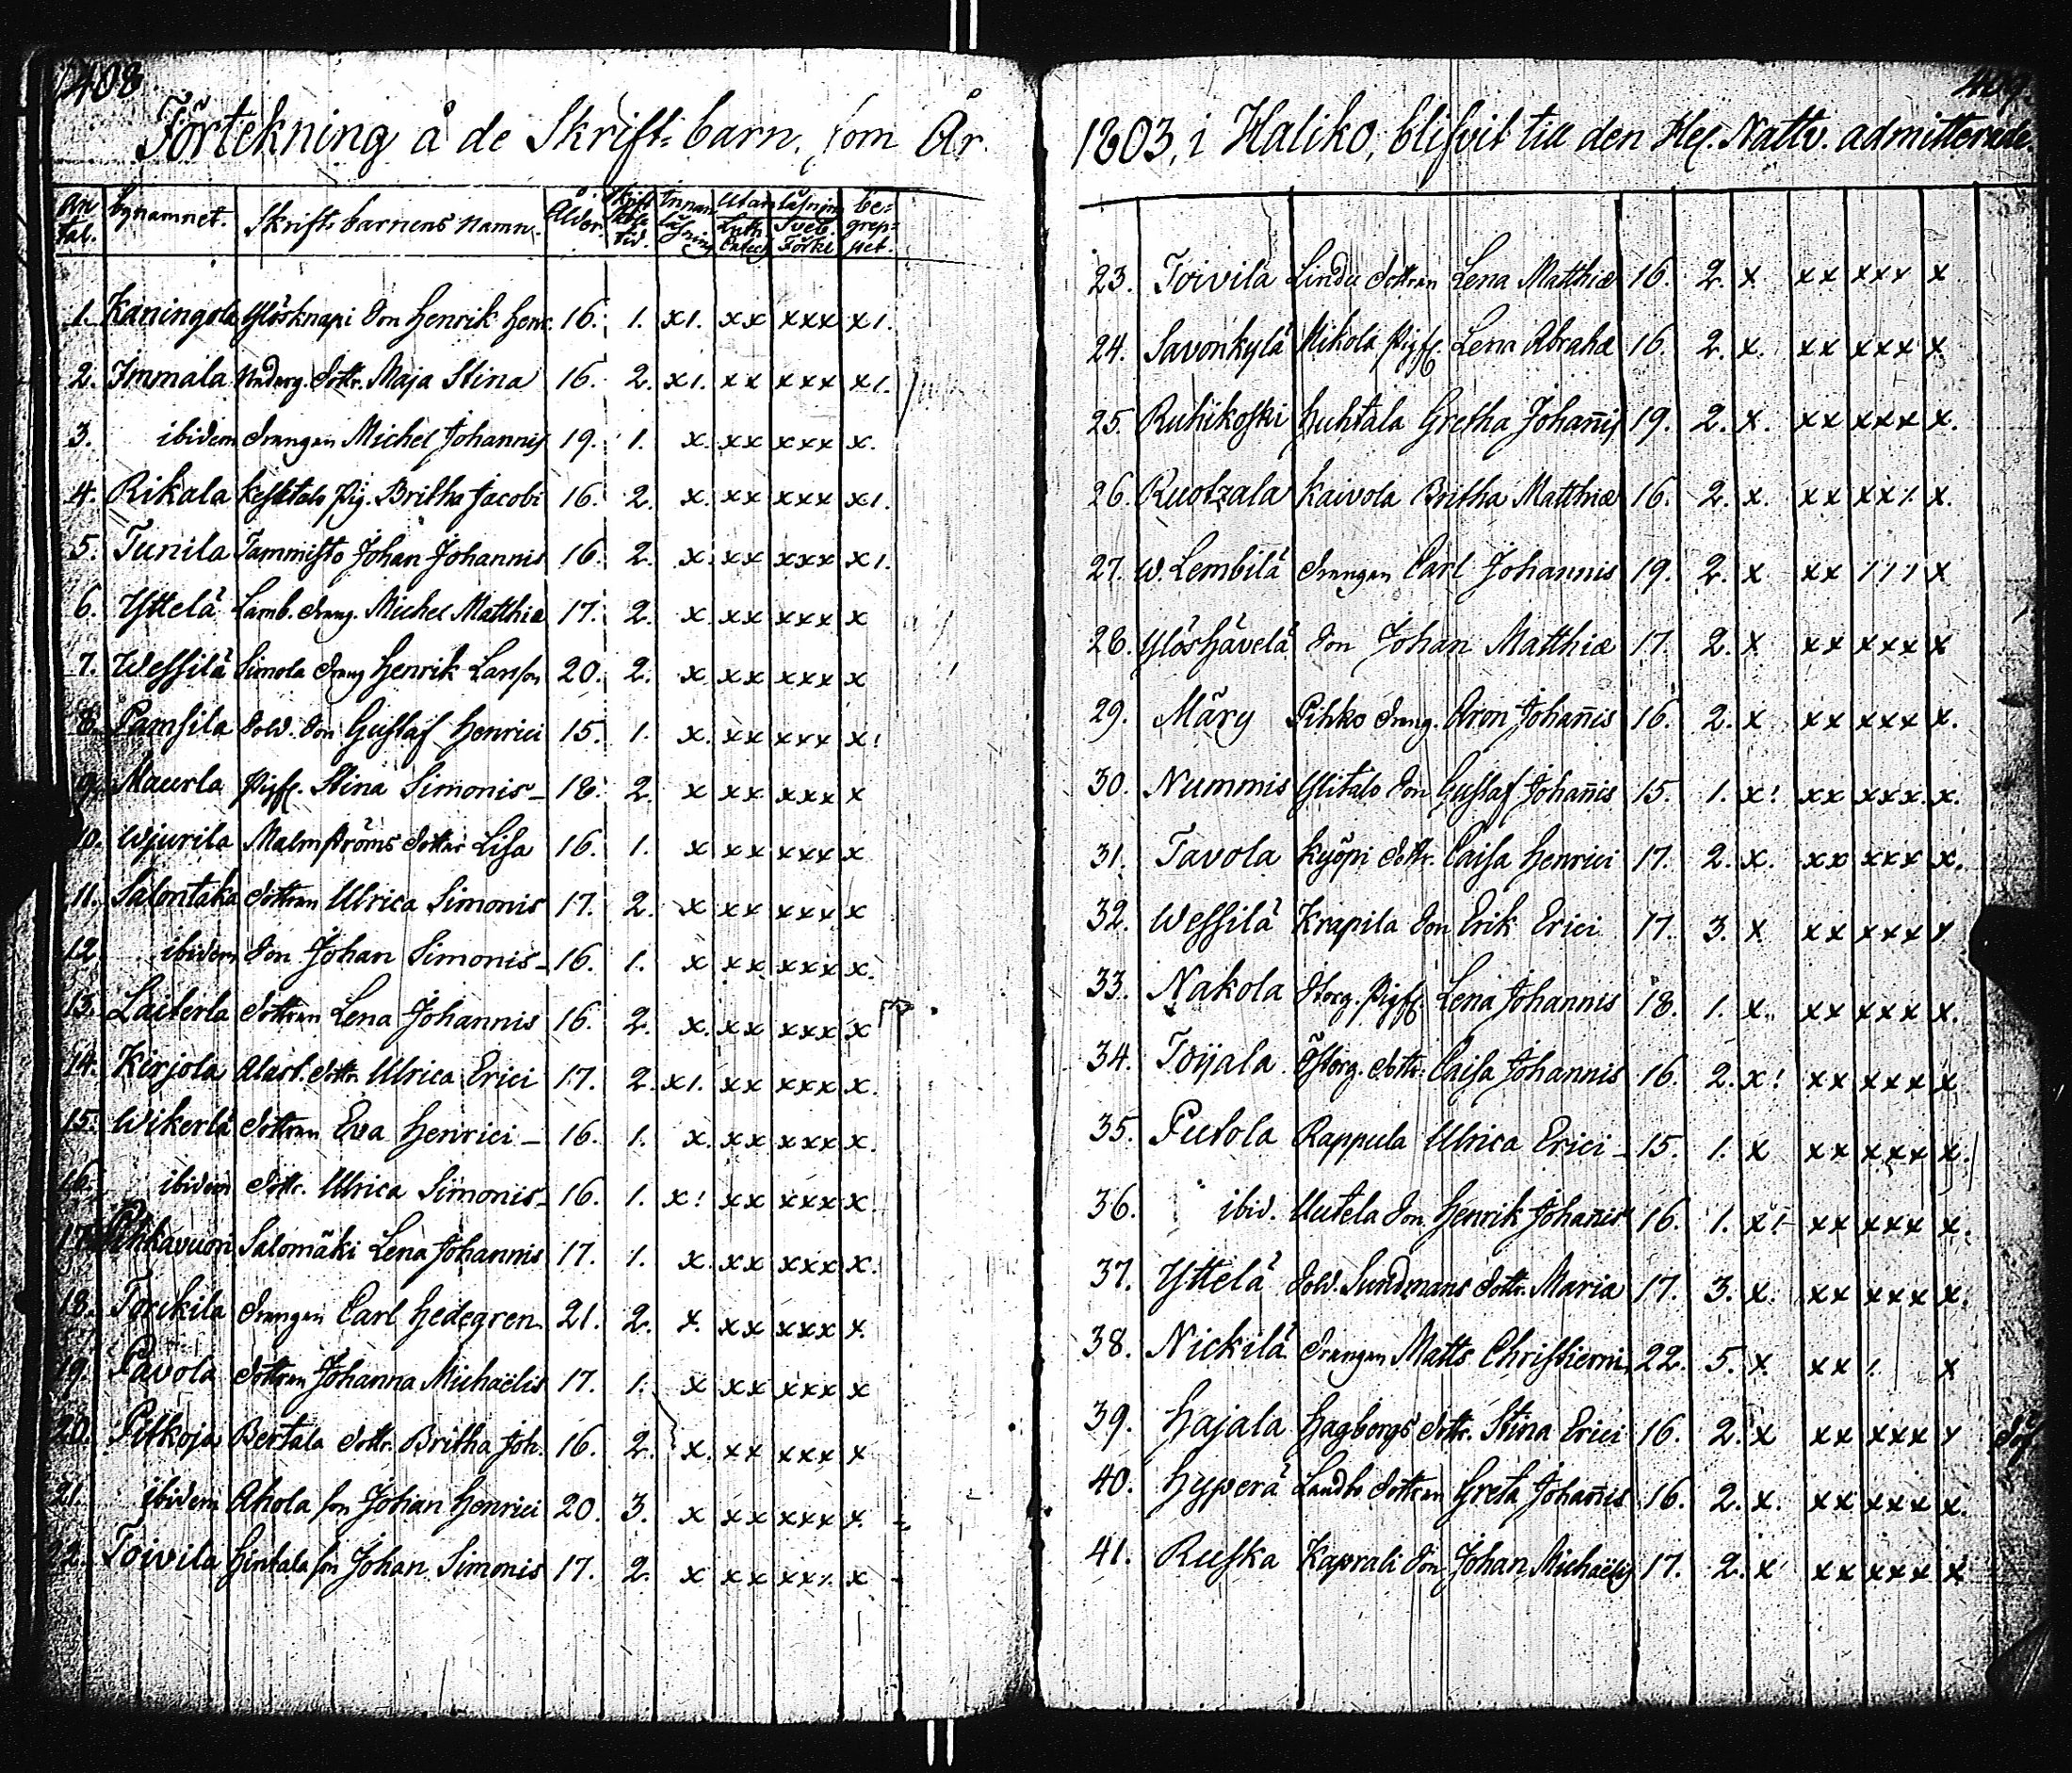 408
Förtekning å de Skrift-barn, som År
An tal. bynamnet. Skrift-barnens namn. Ålder. Skrift Skole tid. Innan läsning Utan läsning Luth. Catech Sveb. Förkl be-grep-pet.
1. Kaningola Ylisknapi Son Henrik Henr. 16. 1. x1. xx xxx x1.
2. Immala Dottr. Maja Stina 16. 2. x1. xx xxx x1.
3. ibidem Drängen Michel Johannis 19. 1. x. xx xxx x.
4. Rikala Keskitalo Pig. Britha Jacobi 16. 2. x. xx xxx x1.
5. Tunila Tammisto Johan Johannis 16. 2. x. xx xxx x1.
6. Yttelä Lamb. Dräng. Michel Matthiæ 17. 2. x xx xxx x
7. Wessilä Simola Dräng Henrik Larsson 20. 2. x xx xxx x
8. Pamsila Sold. Son Gustaf Henrici 15. 1. x. xx xxx x!
9. Maurla Pigs. Stina Simonis - 18. 2. x xx xxx x
10. Wjurila Malmströms Dotter Lisa 16. 1. x xx xxx x
11. Salontaka Dottren Ulrica Simonis 17. 2. x xx xxx x
12. ibidem Son Johan Simonis - 16. 1. x xx xxx x.
13. Laiterla Dottren Lena Johannis 16. 2. x. xx xxx x
14. Kirjola Alast. Dottr. Ulrica Erici 17. 2. x1. xx xxx x.
15. Wikerlä Dottren Eva Henrici - 16. 1. x. xx xxx x.
16. ibidem Dottr. Ulrica Simonis - 16. 1. x! xx xxx x.
17. Pihkavuori Salomäki Lena Johannis 17. 1. x. xx xxx x.
18. Torckila Drängen Carl Hedegren 21. 2. x. xx xxx x.
19. Pavola Dottren Johanna Michaëlis 17. 1. x xx xxx x
20. Pitkoja Bertala Dottr. Britha Joh. 16. 2. x. xx xxx x
21. ibidem Ahola son Johan Henrici 20. 3. x xx xxx x.
22. Toivila Hintala son Johan Simonis 17. 2. x xx xxx x
409.
1803, i Haliko, blifvit till den Hel. Nattv. admitterade.
23. Toivila Lindu Dottren Lena Matthiæ 16. 2. x. xx xxx x
24. Savonkylä Mikola Pigs. Lena Abrahæ 16. 2. x. xx xxx x
25. Ruhikoski Huhtala Gretha Johan̄is 19. 2. x. xx xxx x.
26. Ruotzala Kaivola Britha Matthiæ 16. 2. x. xx xxx x.
27. W. Lembilä Drängen Carl Johannis 19. 2. x xx 111 x
28. Ylöshävelä Son Johan Matthiæ 17. 2. x xx xxx x
29. Märy Pihko Dräng. Aron Johan̄is 16. 2. x xx xxx x.
30. Nummis Ylitalo Son Gustaf Johan̄is 15. 1. x! xx xxx. x.
31. Tavola Kyöpi Dottr. Caisa Henrici 17. 2. x. xx xxx x.
32. Wessilä Krapila Son Erik Erici 17. 3. x xx xxx x
33. Nakola Storg. Pigs. Lena Johannis 18. 1. x. xx xxx x.
34. Toijala Östorg. Dottr. Caisa Johannis 16. 2. x! xx xxx x
35. Putola Rappula Ulrica Erici - 15. 1. x xx xxx x.
36. ibid. Uutela Son Henrik Johan̄is 16. 1. x! xx xxx x.
37. Yttelä Sold. Sundmans Dottr. Maria 17. 3. x. xx xxx x.
38. Nickilä Drängen Matts Christierni 22. 5. x. xx 1. x
39. Hajala Hagborgs Dottr. Stina Erici 16. 2. x xx xxx x
40. Hyperä Landbo Dottren Greta Johan̄is 16. 2. x. xx xxx x.
41. Ruska Kaprali Son Johan Michaëlis 17. 2. x xx xxx x